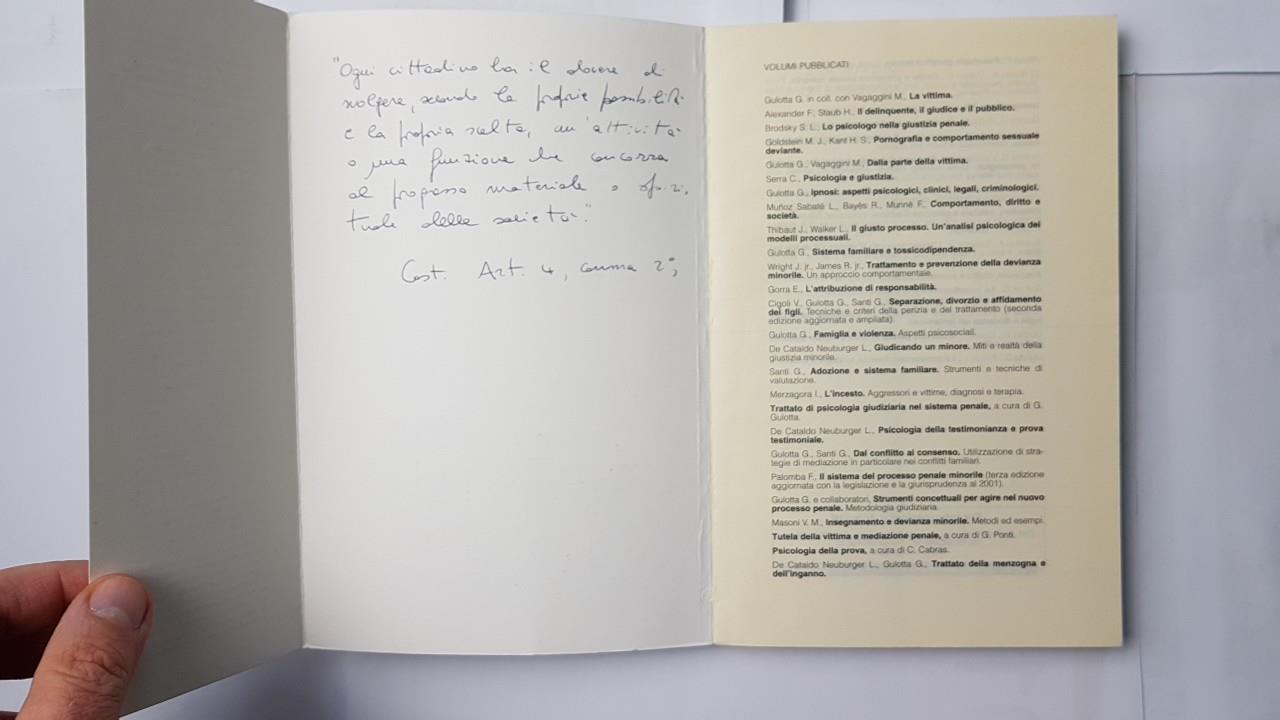 "Ogni cittadino ha il dovere di
svolgere, secondo le proprie possibilità
e la propria scelta, un'attività
o una funzione che concorra
al progresso materiale o spiri,
tuale della società."
Cost. Art. 4, comma 2°,
VOLUMI PUBBLICATI
Gulotta G. in coll. con Vagaggini M., La vittima.
Alexander F., Staub H., Il delinquente, il giudice e il pubblico.
Brodsky S. L., Lo psicologo nella giustizia penale.
Goldstein M. J., Kant H. S., Pornografia e comportamento sessuale
deviante.
Gulotta G., Vagaggini M., Dalla parte della vittima.
Serra C., Psicologia e giustizia.
Gulotta G., Ipnosi: aspetti psicologici, clinici, legali, criminologici.
Muñoz Sabaté L., Bayés R., Munné F., Comportamento, diritto e
società.
Thibaut J., Walker L., Il giusto processo. Un'analisi psicologica dei
modelli processuali.
Gulotta G., Sistema familiare e tossicodipendenza.
Wright J. jr., James R. jr., Trattamento e prevenzione della devianza
minorile. Un approccio comportamentale.
Gorra E., L'attribuzione di responsabilità.
Cigoli V., Gulotta G., Santi G., Separazione, divorzio e affidamento
dei figli. Tecniche e criteri della perizia e del trattamento (seconda
edizione aggiornata e ampliata).
Gulotta G., Famiglia e violenza. Aspetti psicosociali.
De Cataldo Neuburger L., Giudicando un minore. Miti e realtà della
giustizia minorile.
Santi G., Adozione e sistema familiare. Strumenti e tecniche di
valutazione.
Merzagora I., L'incesto. Aggressori e vittime, diagnosi e terapia.
Trattato di psicologia giudiziaria nel sistema penale, a cura di G.
Gulotta.
De Cataldo Neuburger L., Psicologia della testimonianza e prova
testimoniale.
Gulotta G., Santi G., Dal conflitto al consenso. Utilizzazione di stra-
tegie di mediazione in particolare nei conflitti familiari.
Palomba F., Il sistema del processo penale minorile (terza edizione
aggiornata con la legislazione e la giurisprudenza al 2001).
Gulotta G. e collaboratori, Strumenti concettuali per agire nel nuovo
processo penale. Metodologia giudiziaria.
Masoni V. M., Insegnamento e devianza minorile. Metodi ed esempi.
Tutela della vittima e mediazione penale, a cura di G. Ponti.
Psicologia della prova, a cura di C. Cabras.
De Cataldo Neuburger L., Gulotta G., Trattato della menzogna e
dell'inganno.